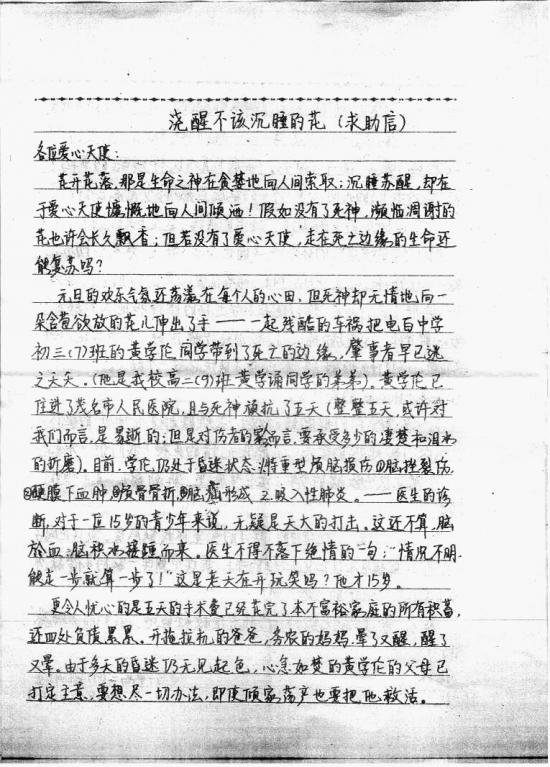 浇醒不该沉睡的花（求助信）
各位爱心天使：
花开花落，那是生命之神在贪婪地向人间索取；沉睡苏醒，却在
于爱心天使慷慨地向人间倾洒！假如没有了死神，濒临凋谢的
花也许会长久飘香；但若没有了爱心天使，走在死亡边缘的生命还
能复苏吗？
元旦的欢乐气氛还荡漾在每个人的心田，但死神却无情地向一
朵含苞欲放的花儿伸出了手——一起残酷的车祸把电白中学
初三(7)班的黄学伦同学带到了死亡的边缘，肇事者早已逃
之夭夭。(他是我校高二(9)班黄学诵同学的弟弟)。黄学伦已
住进了茂名市人民医院，且与死神顽抗了五天(整整五天，或许对
我们而言，是易逝的；但是对伤者的家人而言，要承受多少的凄楚和泪水
的折磨)。目前，学伦仍处于昏迷状态：1.特重型颅脑损伤①脑挫裂伤
②硬膜下血肿③颅骨骨折④脑疝形成 2.吸入性肺炎。——医生的诊
断，对于一位15岁的青少年来说，无疑是天大的打击。这还不算，脑
瘀血、脑积水接踵而来。医生不得不落下绝情的一句："情况不明，
能走一步就算一步了！"这是老天在开玩笑吗？他才15岁。
更令人忧心的是五天的手术费已经花完了本不富裕家庭的所有积蓄，
还四处负债累累。开拖拉机的爸爸，务农的妈妈，晕了又醒，醒了
又晕。由于多天的昏迷仍无见起色，心急如焚的黄学伦的父母已
打定主意，要想尽一切办法，即使倾家荡产也要把他救活。